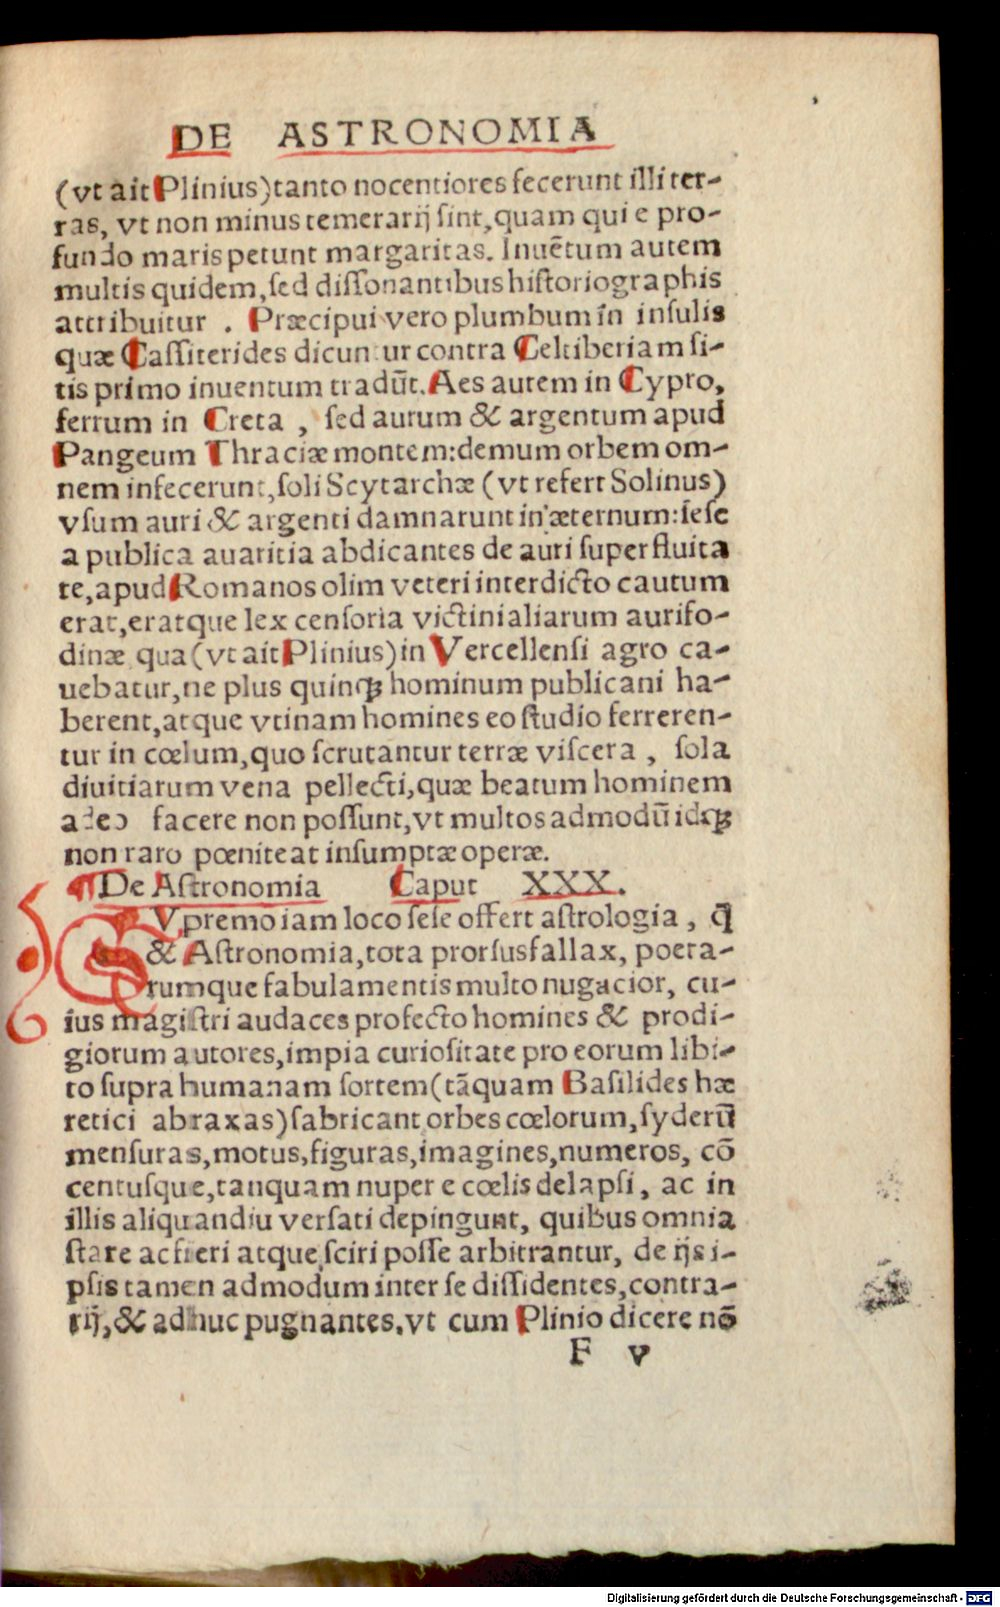 DE ASTRONOMIA
(vt ait Plinius) tanto nocentiores fecerunt illi ter-
ras, vt non minus temerarij sint, quam qui e pro-
fundo maris petunt margaritas. Inuētum autem
multis quidem, sed dissonantibus historiographis
attribuitur . Præcipui vero plumbum in insulis
quæ Cassiterides dicuntur contra Celtiberiam si-
tis primo inuentum tradūt. Aes autem in Cypro,
ferrum in Creta , sed aurum & argentum apud
Pangeum Thraciæ montem: demum orbem om-
nem infecerunt, soli Scytarchæ (vt refert Solinus)
vsum auri & argenti damnarunt in æternum: sese
a publica auaritia abdicantes de auri superfluita
te, apud Romanos olim veteri interdicto cautum
erat, eratque lex censoria victinialiarum aurifo-
dinæ qua (vt ait Plinius) in Vercellensi agro ca-
uebatur, ne plus quinqꝫ hominum publicani ha-
berent, atque vtinam homines eo studio ferreren-
tur in cœlum, quo scrutantur terræ viscera , sola
diuitiarum vena pellecti, quæ beatum hominem
adeo facere non possunt, vt multos admodū idqꝫ
non raro pœniteat insumptæ operæ.
¶ De Astronomia Caput XXX.
SVpremo iam loco sese offert astrologia , q̄
& Astronomia, tota prorsus fallax, poeta-
rumque fabulamentis multo nugacior, cu-
ius magistri audaces profecto homines & prodi-
giorum autores, impia curiositate pro eorum libi-
to supra humanam sortem (tāquam Basilides hæ
retici abraxas) fabricant orbes cœlorum, syderū
mensuras, motus, figuras, imagines, numeros, cō
centusque, tanquam nuper e cœlis delapsi, ac in
illis aliquandiu versati depingunt, quibus omnia
stare ac fieri atque sciri posse arbitrantur, de ijs i-
psis tamen admodum inter se dissidentes, contra-
rij, & adhuc pugnantes, vt cum Plinio dicere nō
F v
Digitalisierung gefördert durch die Deutsche Forschungsgemeinschaft - DFG